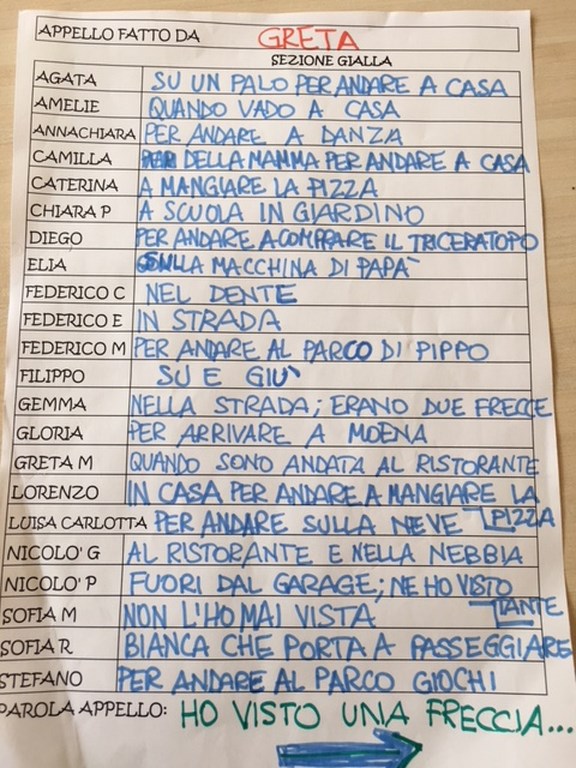 APPELLO FATTO DA GRETA
SEZIONE GIALLA
AGATA SU UN PALO PER ANDARE A CASA
AMELIE QUANDO VADO A CASA
ANNACHIARA PER ANDARE A DANZA
CAMILLA DELLA MAMMA PER ANDARE A CASA
CATERINA A MANGIARE LA PIZZA
CHIARA P A SCUOLA IN GIARDINO
DIEGO PER ANDARE A COMPRARE IL TRICERATOPO
ELIA SULLA MACCHINA DI PAPA'
FEDERICO C NEL DENTE
FEDERICO E IN STRADA
FEDERICO M PER ANDARE AL PARCO DI PIPPO
FILIPPO SU E GIU'
GEMMA NELLA STRADA; ERANO DUE FRECCE
GLORIA PER ARRIVARE A MOENA
GRETA M QUANDO SONO ANDATA AL RISTORANTE
LORENZO IN CASA PER ANDARE A MANGIARE LA
PIZZA
LUISA CARLOTTA PER ANDARE SULLA NEVE
NICOLO' G AL RISTORANTE E NELLA NEBBIA
NICOLO' P FUORI DAL GARAGE; NE HO VISTO
TANTE
SOFIA M NON L'HO MAI VISTA
SOFIA R BIANCA CHE PORTA A PASSEGGIARE
STEFANO PER ANDARE AL PARCO GIOCHI
PAROLA APPELLO: HO VISTO UNA FRECCIA...